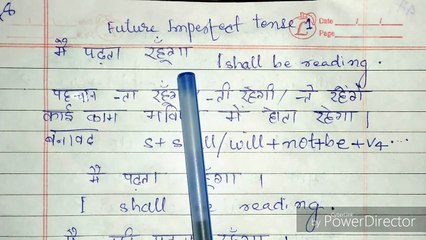 Future Imperfect tense 1
Date / /
Page
मैं पढ़ता रहूँगा I shall be reading.
पहचान -ता रहूँगा / -ती रहेगी / -ते रहेंगे
कोई काम में होता रहेगा ।
बनावट s + shall/will + not + be + v4 ...
मैं पढ़ता ।
I shall be reading.
PowerDirector